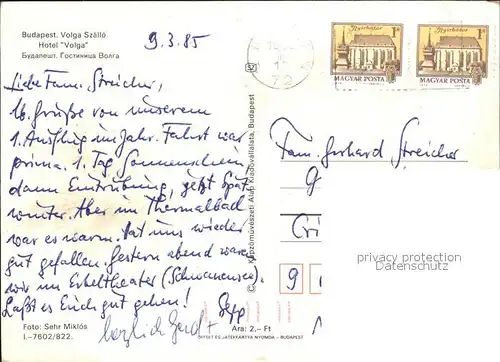 Budapest. Volga Szálló
Hotel "Volga"
Будапешт. Гостиница Волга
9.3.85
Liebe Fam. Streicher,
lb. Grüße von unserem
1. Ausflug im Jahr. Fahrt war
prima. 1. Tag Sonnenschein
dann Eintrübung, jetzt Spät
winter. Aber im Thermalbad
war es warm. Hat uns wieder
gut gefallen. Gestern abend waren
wir im Erkeltheater (Schwanensee).
Laßt es Euch gut gehen!
Sepp
herzlich Gerd +
Foto: Sehr Miklós
I.-7602/822.
Ára: 2.- Ft
OFFSET ÉS JÁTÉKKÁRTYA NYOMDA - BUDAPEST
Képzőművészeti Alap Kiadóvállalata, Budapest
Nyírbátor
1 Ft
MAGYAR POSTA
Nyírbátor
1 Ft
MAGYAR POSTA
Fam. Gerhard Streicher
G
Cri
9 1
privacy protection
Datenschutz